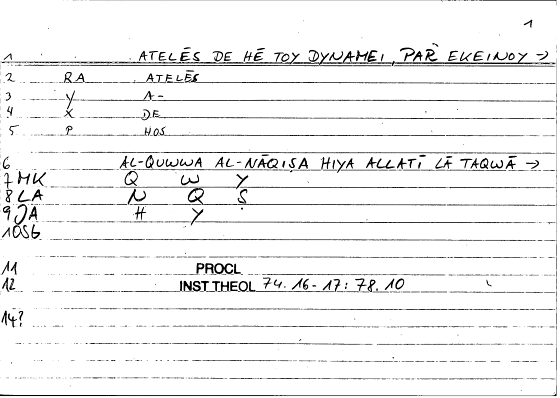 1
1 ATELĒS DE HĒ TOY DYNAMEI, PAR' EKEINOY →
2 RA ATELĒS
3 Y A-
4 X DE
5 P HOS
6 AL-QUWWA AL-NĀQIṢA HIYA ALLATĪ LĀ TAQWĀ →
7 MK Q W Y
8 LA N Q Ṣ
9 JA H Y
10 SG
11 PROCL
12 INST THEOL 74.16-17: 78.10
14?